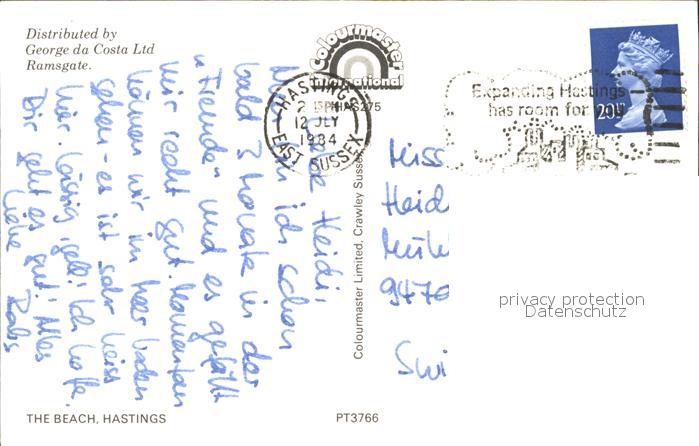 Distributed by
George da Costa Ltd
Ramsgate.
Colourmaster
International
HASTINGS
2 15PM
HAS275
12 JLY
1984
EAST SUSSEX
Expanding Hastings
has room for
20P
Liebe Heidi,
Nun bin ich schon
bald 3 Monate in der
Fremde und es gefällt
mir recht gut. Momentan
können wir im Meer baden
gehen - es ist sehr heiss
hier. Lässig, gell! Ich hoffe
Dir geht es gut! Alles
Liebe
Babs
Colourmaster Limited, Crawley Sussex
Miss
Heid
Mühl
9470
Swi
privacy protection
Datenschutz
THE BEACH, HASTINGS
PT3766